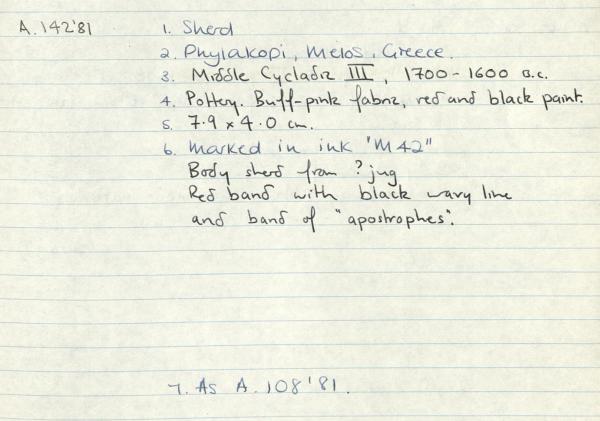 A.142'81
1. Sherd
2. Phylakopi, Melos, Greece.
3. Middle Cycladic III, 1700-1600 B.C.
4. Pottery. Buff-pink fabric, red and black paint.
5. 7.9 x 4.0 cm.
6. Marked in ink "M42"
Body sherd from ? jug
Red band with black wavy line
and band of "apostrophes".
7. As A.108'81.